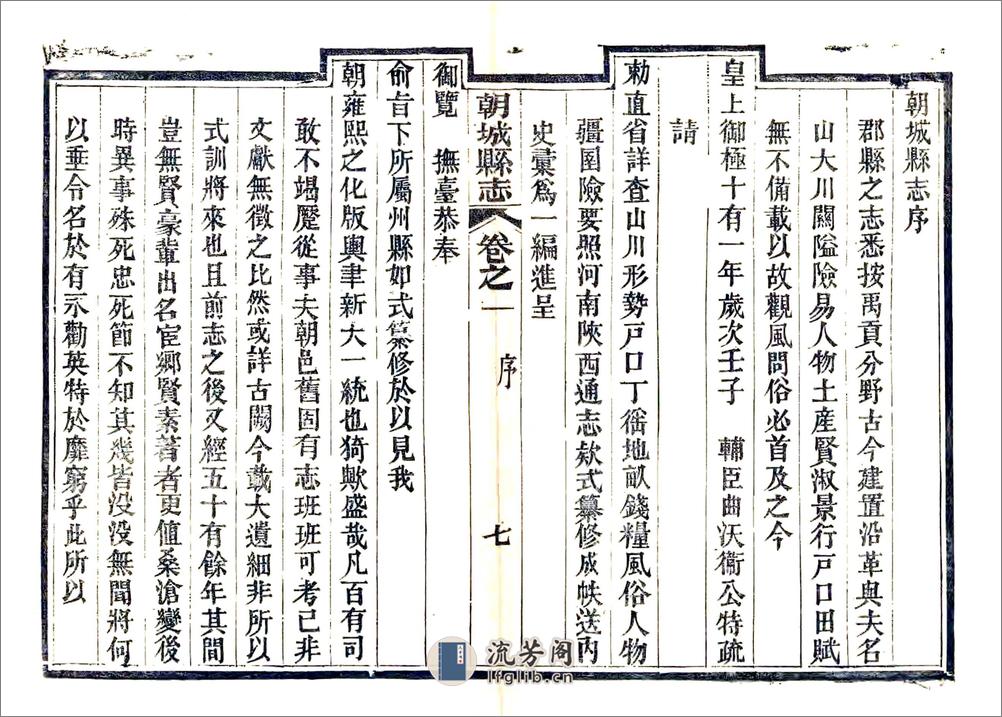 朝城縣志序
郡縣之志悉按禹貢分野古今建置沿革與夫名
山大川關隘險易人物土産賢淑景行戸口田賦
無不備載以故觀風問俗必首及之今
皇上御極十有一年歲次壬子 輔臣曲沃衞公特疏
請
勅直省詳查山川形勢戸口丁徭地畝錢糧風俗人物
疆圉險要照河南陝西通志欵式纂修成帙送內
史彙爲一編進呈
朝城縣志 卷之一 序 七
御覽 撫臺恭奉
俞旨下所屬州縣如式纂修於以見我
朝雍熙之化版輿聿新大一統也猗歟盛哉凡百有司
敢不竭蹷從事夫朝邑舊固有志班班可考已非
文獻無徵之比然或詳古闕今載大遺細非所以
式訓將來也且前志之後又經五十有餘年其間
豈無賢豪輩出名宦鄉賢素著者更值桑滄變後
時異事殊死忠死節不知其幾皆没没無聞將何
以垂令名於有永勸英特於靡窮乎此所以
流芳阁
lfglib.cn